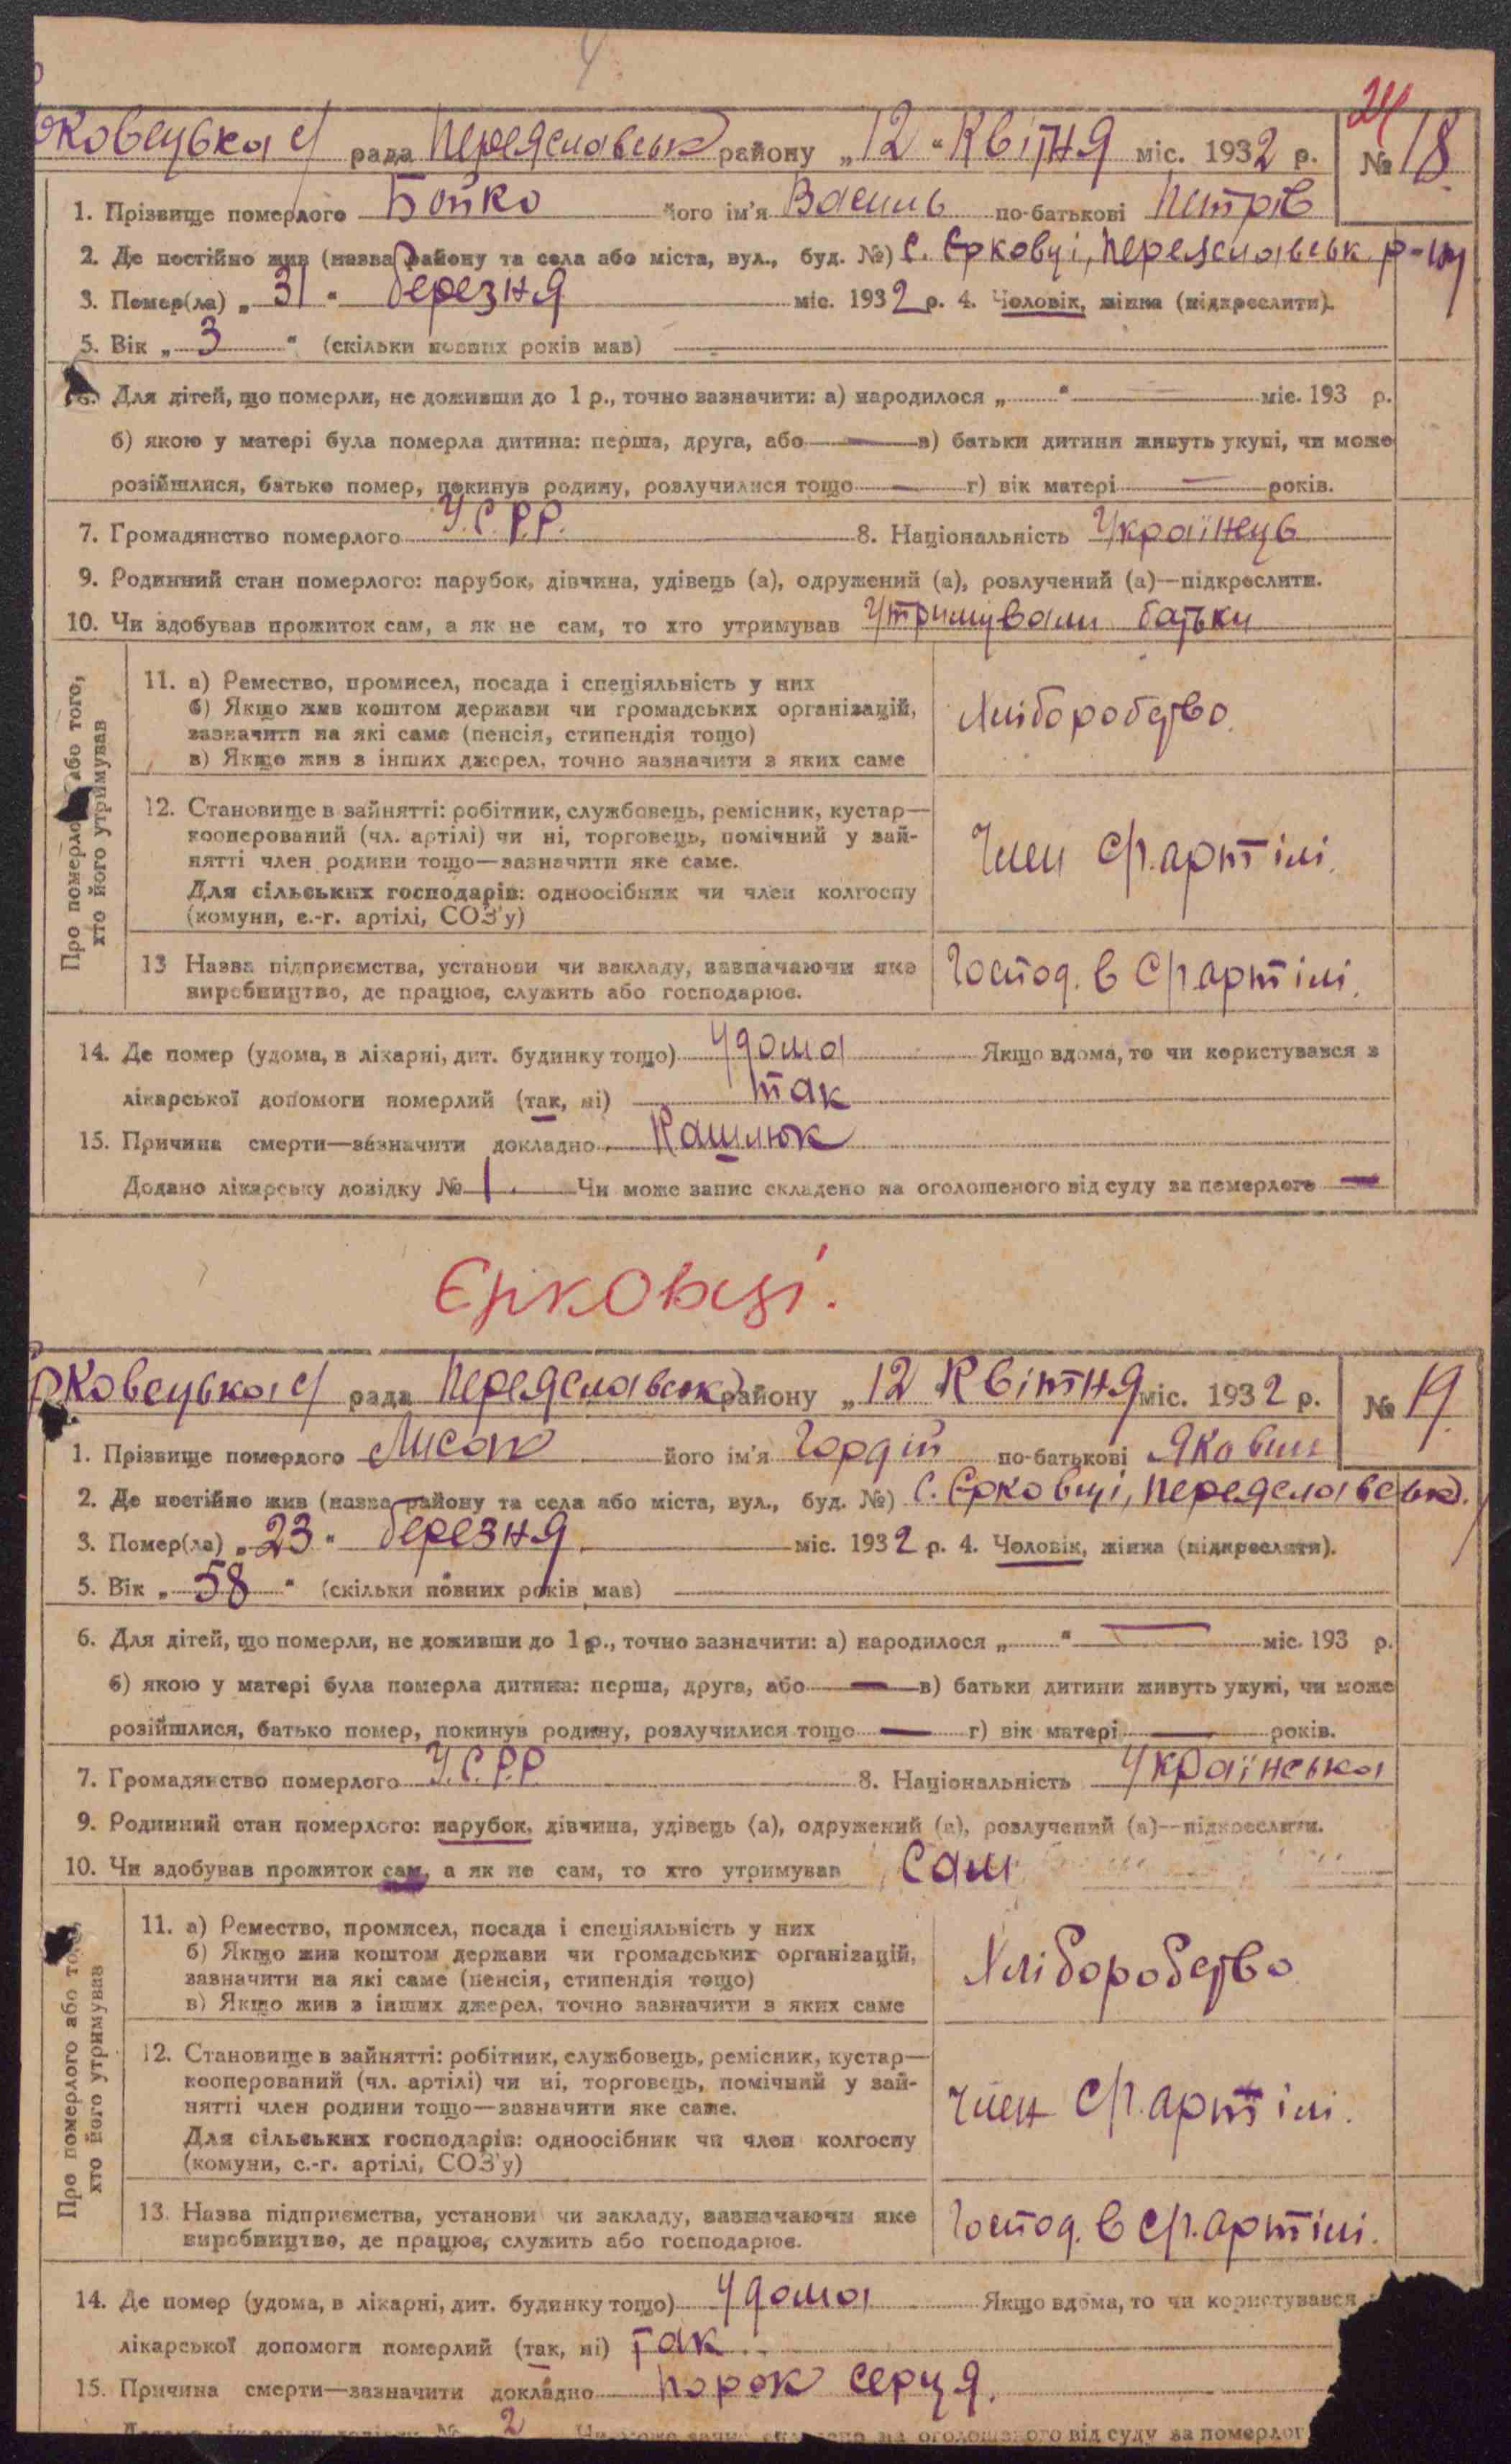 рковецька с/ рада Переяславськ району „12 " Квітня міс. 1932 р. № 18
1. Прізвище померлого Бойко його ім'я Василь по-батькові Петрів
2. Де постійно жив (назва району та села або міста, вул., буд. №) С. Єрковці, Переяславськ р-ну
3. Помер(ла) „ 31 " березня міс. 1932 р. 4. Чоловік, жінка (підкреслити).
5. Вік „ 3 " (скільки повних років мав)
6. Для дітей, що померли, не доживши до 1 р., точно зазначити: а) народилося „ " міс. 193 р.
б) якою у матері була померла дитина: перша, друга, або — в) батьки дитини живуть укупі, чи може
розійшлися, батько помер, покинув родину, розлучилися тощо — г) вік матері — років.
7. Громадянство померлого У.С.Р.Р. 8. Національність Українець
9. Родинний стан померлого: парубок, дівчина, удівець (а), одружений (а), розлучений (а)—підкреслити.
10. Чи здобував прожиток сам, а як не сам, то хто утримував Утримували батьки
Про померлого або того,
хто його утримував
11. а) Ремество, промисел, посада і спеціяльність у них
б) Якщо жив коштом держави чи громадських організацій,
зазначити на які саме (пенсія, стипендія тощо)
в) Якщо жив з інших джерел, точно зазначити з яких саме
Хліборобство.
12. Становище в зайнятті: робітник, службовець, ремісник, кустар—
кооперований (чл. артілі) чи ні, торговець, помічний у зай-
нятті член родини тощо—зазначити яке саме.
Для сільських господарів: одноосібник чи член колгоспу
(комуни, с.-г. артілі, СОЗ'у)
Член с/г. артілі.
13 Назва підприємства, установи чи закладу, зазначаючи яке
виробництво, де працює, служить або господарює.
Господ. в с/г артілі.
14. Де помер (удома, в лікарні, дит. будинку тощо) Удома Якщо вдома, то чи користувався з
лікарської допомоги померлий (так, ні) так
15. Причина смерти—зазначити докладно Кашлюк
Додано лікарську довідку № 1. Чи може запис складено на оголошеного від суду за померлого —
Єрковці.
рковецька с/ рада Переяславськ району „ 12 Квітня міс. 1932 р. № 19
1. Прізвище померлого Лисак його ім'я Гордій по-батькові Якович
2. Де постійно жив (назва району та села або міста, вул., буд. №) С. Єрковці, Переяславськ.
3. Помер(ла) „ 23 " березня міс. 1932 р. 4. Чоловік, жінка (підкреслити).
5. Вік „ 58 " (скільки повних років мав)
6. Для дітей, що померли, не доживши до 1 р., точно зазначити: а) народилося „ " — міс. 193 р.
б) якою у матері була померла дитина: перша, друга, або — в) батьки дитини живуть укупі, чи може
розійшлися, батько помер, покинув родину, розлучилися тощо — г) вік матері — років.
7. Громадянство померлого У.С.Р.Р. 8. Національність Українська
9. Родинний стан померлого: парубок, дівчина, удівець (а), одружений (а), розлучений (а)—підкреслити.
10. Чи здобував прожиток сам, а як не сам, то хто утримував Сам
Про померлого або того,
хто його утримував
11. а) Ремество, промисел, посада і спеціяльність у них
б) Якщо жив коштом держави чи громадських організацій,
зазначити на які саме (пенсія, стипендія тощо)
в) Якщо жив з інших джерел, точно зазначити з яких саме
Хліборобство
12. Становище в зайнятті: робітник, службовець, ремісник, кустар—
кооперований (чл. артілі) чи ні, торговець, помічний у зай-
нятті член родини тощо—зазначити яке саме.
Для сільських господарів: одноосібник чи член колгоспу
(комуни, с.-г. артілі, СОЗ'у)
Член с/г. артілі.
13. Назва підприємства, установи чи закладу, зазначаючи яке
виробництво, де працює, служить або господарює.
Господ. в с/г. артілі.
14. Де помер (удома, в лікарні, дит. будинку тощо) Удома Якщо вдома, то чи користувався
лікарської допомоги померлий (так, ні) Так
15. Причина смерти—зазначити докладно Порок серця.
Додано лікарську довідку № 2 Чи може запис складено на оголошеного від суду за померлог